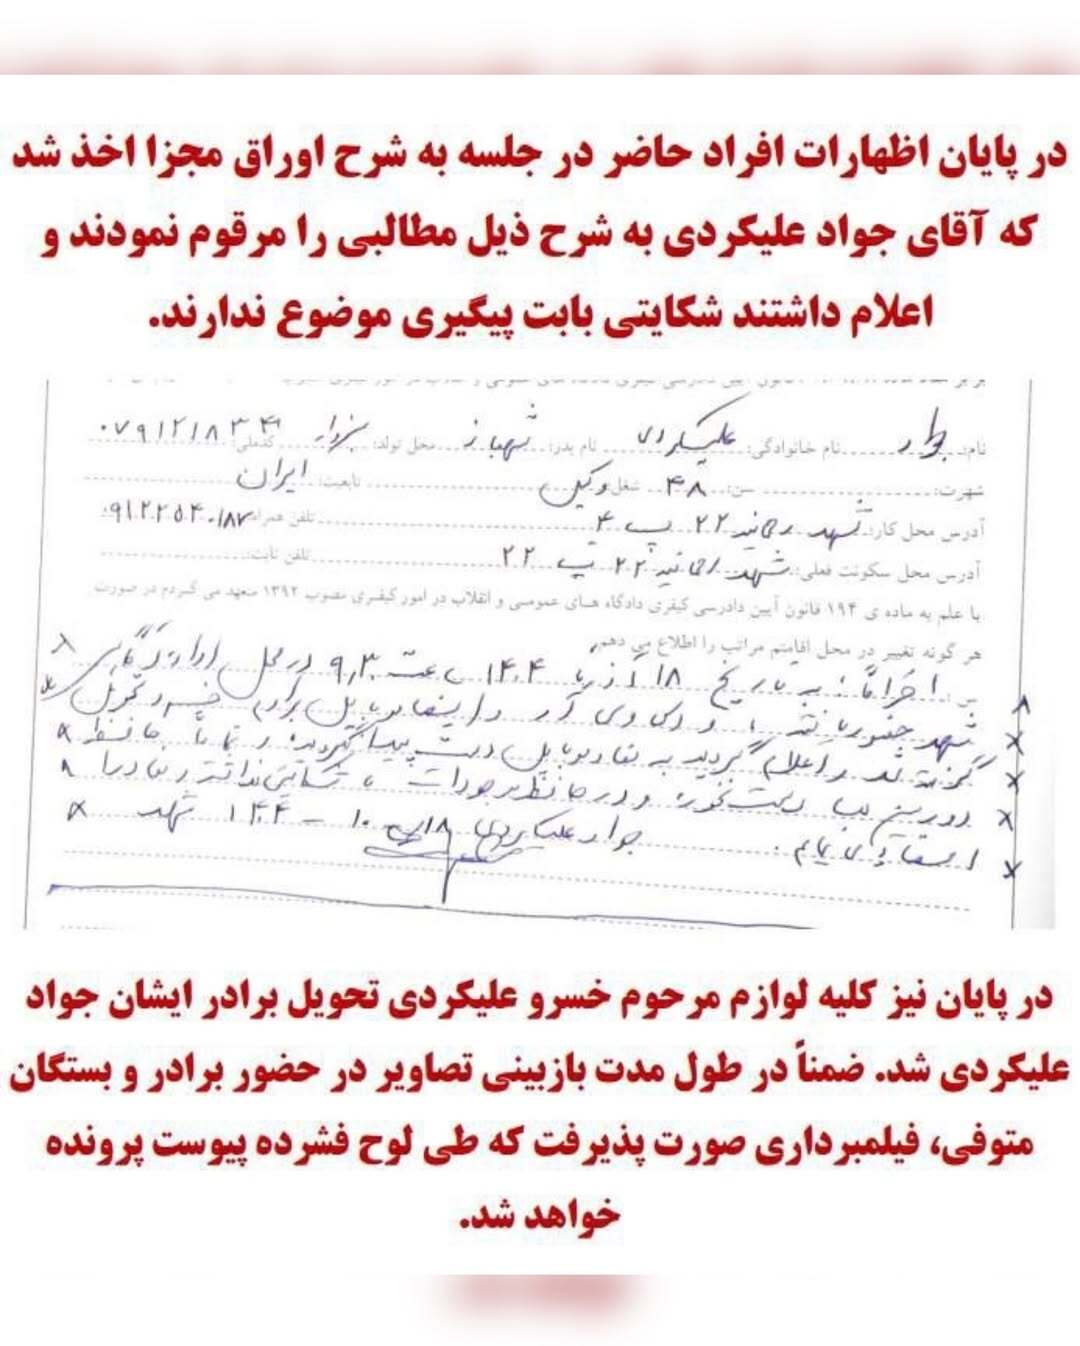 در پایان اظهارات افراد حاضر در جلسه به شرح اوراق مجزا اخذ شد
که آقای جواد علیکردی به شرح ذیل مطالبی را مرقوم نمودند و
اعلام داشتند شکایتی بابت پیگیری موضوع ندارند.
نام: جواد نام خانوادگی: علیکردی نام پدر: شهباز محل تولد: سبزوار کدملی:
شهرت: سن: ۴۸ شغل: وکیل تابعیت: ایران
آدرس محل کار: مشهد ۲۲ پ ۴ تلفن همراه:
آدرس محل سکونت فعلی: مشهد ۲۲ پ ۲۲ تلفن ثابت:
با علم به ماده ی ۱۹۴ قانون آیین دادرسی کیفری دادگاه های عمومی و انقلاب در امور کیفری مصوب ۱۳۹۲ متعهد می گردم در صورت
هر گونه تغییر در محل اقامتم مراتب را اطلاع می دهم
احتراماً به تاریخ ۱۸ آذر ۱۴۰۴ ساعت ۹،۳۰ در محل اداره آگاهی
مشهد دی وی آر و موبایل برادرم خسرو تحویل
گرفته شد و اعلام گردید به موبایل دست پیدا نکردید و حافظه
دوربین دست نخورده و در حافظه موجود است شکایتی نداشته
جواد علیکردی ۱۴۰۴ مشهد
در پایان نیز کلیه لوازم مرحوم خسرو علیکردی تحویل برادر ایشان جواد
علیکردی شد. ضمناً در طول مدت بازبینی تصاویر در حضور برادر و بستگان
متوفی، فیلمبرداری صورت پذیرفت که طی لوح فشرده پیوست پرونده
خواهد شد.